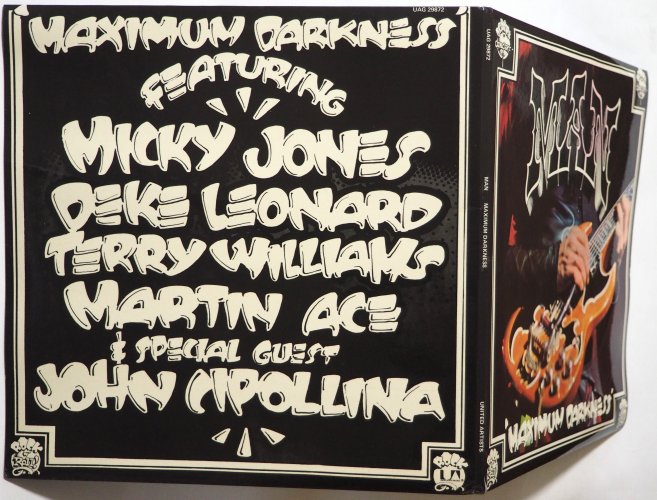 UAG 29872
MAXIMUM DARKNESS
FEATURING
MICKY JONES
DEKE LEONARD
TERRY WILLIAMS
MARTIN ACE
& SPECIAL GUEST
JOHN CIPOLLINA
UAG 29872
MAN
MAXIMUM DARKNESS
UNITED ARTISTS
MAN
'MAXIMUM DARKNESS'